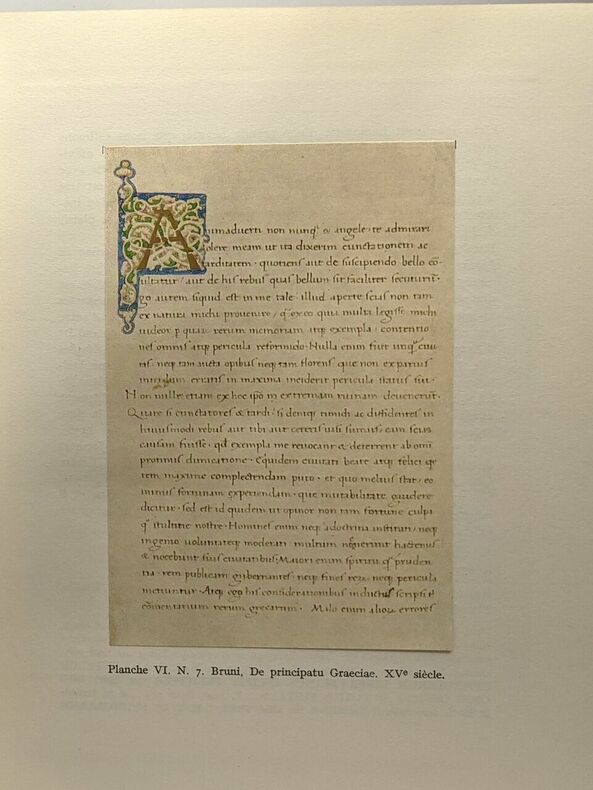 Animaduerti non nunq̃ o angele te admirari
solere meam ut ita dixerim cunctationem ac
tarditatem · quotiens aut de suscipiendo bello cõ
sultatur / aut de his rebus quas bellum sit faciliter secuturũ·
go autem siquid est in me tale · illud aperte scias non tam
ex natura michi prouenire / q̃ ex eo quia multa legisse michi
uideor p quaꝝ rerum memoriam atqꝫ exempla / contentio
nes omnis atqꝫ pericula reformido · Nulla enim fuit unq̃ ciui
tas neqꝫ tam aucta opibus neqꝫ tam florens que non ex paruis
erratis in maxima inciderit pericula status sui ·
Non nulle etiam ex hoc ipõ in extremam ruinam deuenerũt·
Quare si cunctatores & tardi / si deniqꝫ timidi ac diffidentes in
huiusmodi rebus aut tibi aut ceteris uisi sumus / eam scias
causam fuisse · qđ exempla me reuocant & deterrent ab omi
protinus dimicatione · Equidem ciuitati beate atqꝫ felici qe
tem maxime complectendam puto · et quo melius stat / eo
minus fortunam experiendam · que mutabilitate gaudere
dicitur · sed est id quidem ut opinor non tam fortune culpa
q̃ stultitie nostre · Homines enim neqꝫ a doctrina instituti / neqꝫ
ingenio uoluntateqꝫ moderati · multum nocuerunt hactenus
& nocebunt suis ciuitatibus · Maiori enim spiritu q̃ pruden
tia · rem publicam gubernantes / neqꝫ fines neqꝫ pericula
metiuntur · Atqꝫ ego his considerationibus inductus scripsi &
cõmentarium rerum grecarum · enim alioꝝ errores
Planche VI. N. 7. Bruni, De principatu Graeciae. XVᵉ siècle.